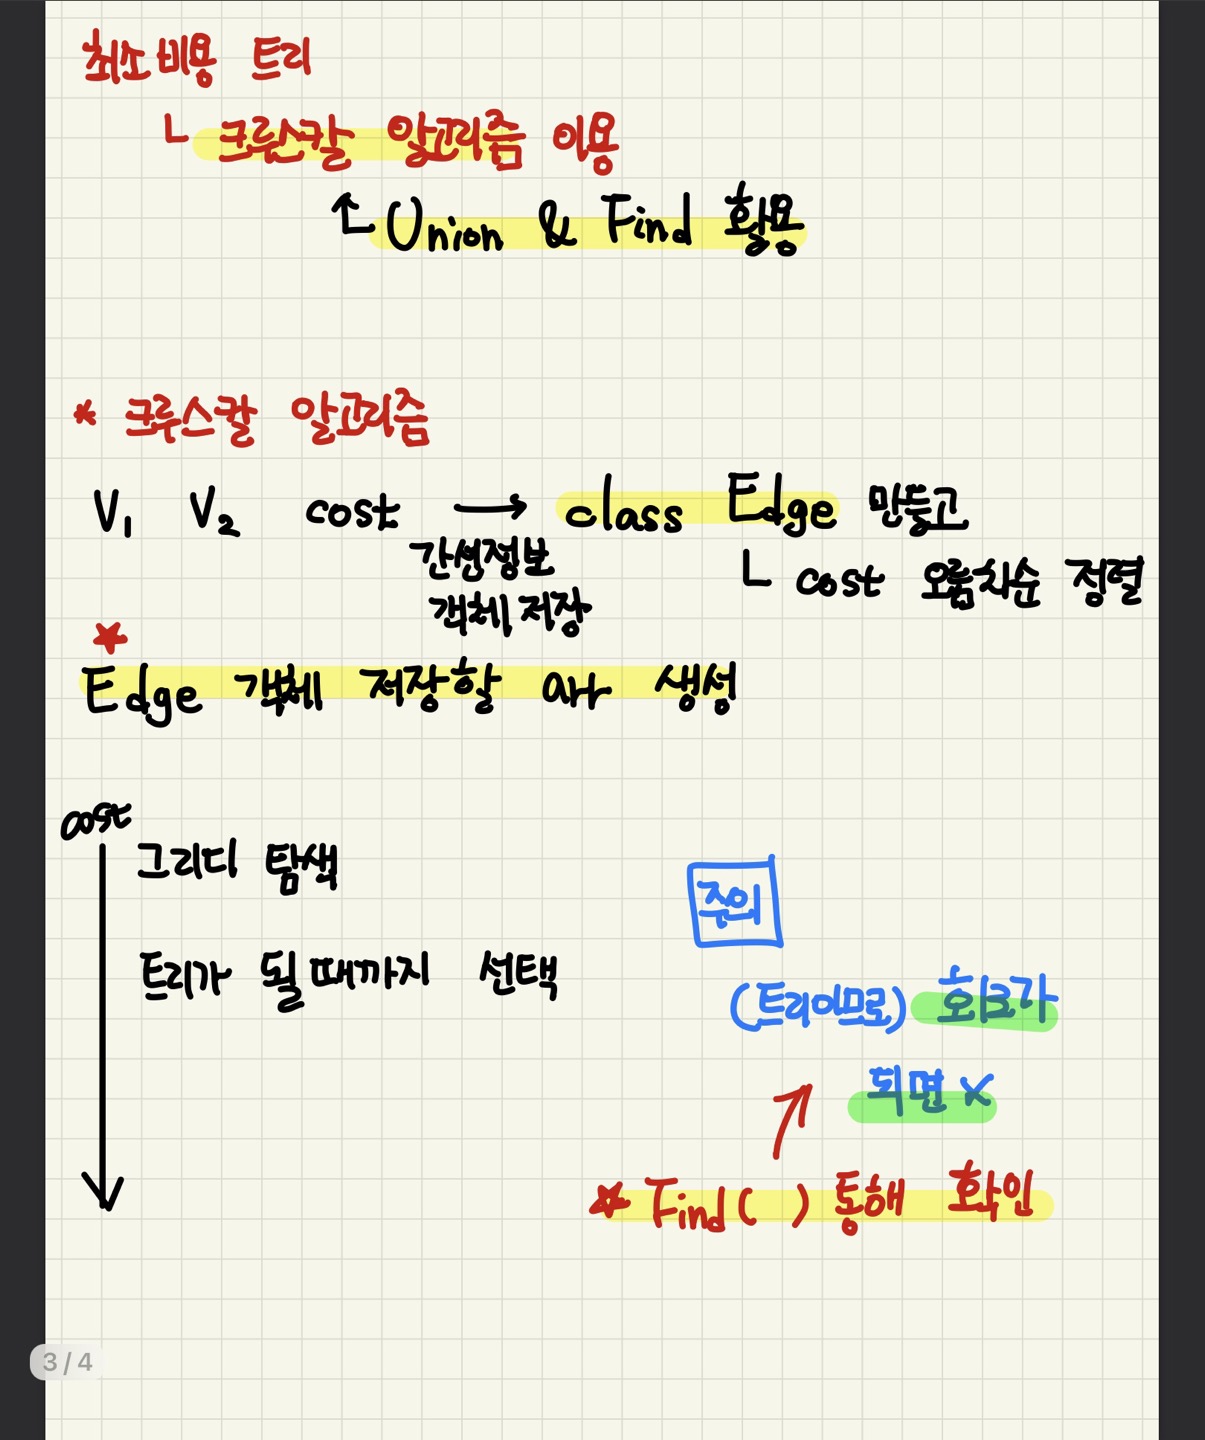 최소비용 트리
ㄴ 크루스칼 알고리즘 이용
Union & Find 활용
* 크루스칼 알고리즘
V1 V2 cost → class Edge 만들고
간선정보
객체 저장
ㄴ cost 오름차순 정렬
★
Edge 객체 저장할 arr 생성
cost
그리디 탐색
트리가 될 때까지 선택
주의
(트리이므로) 회로가
되면 X
★ Find( ) 통해 확인
3/4